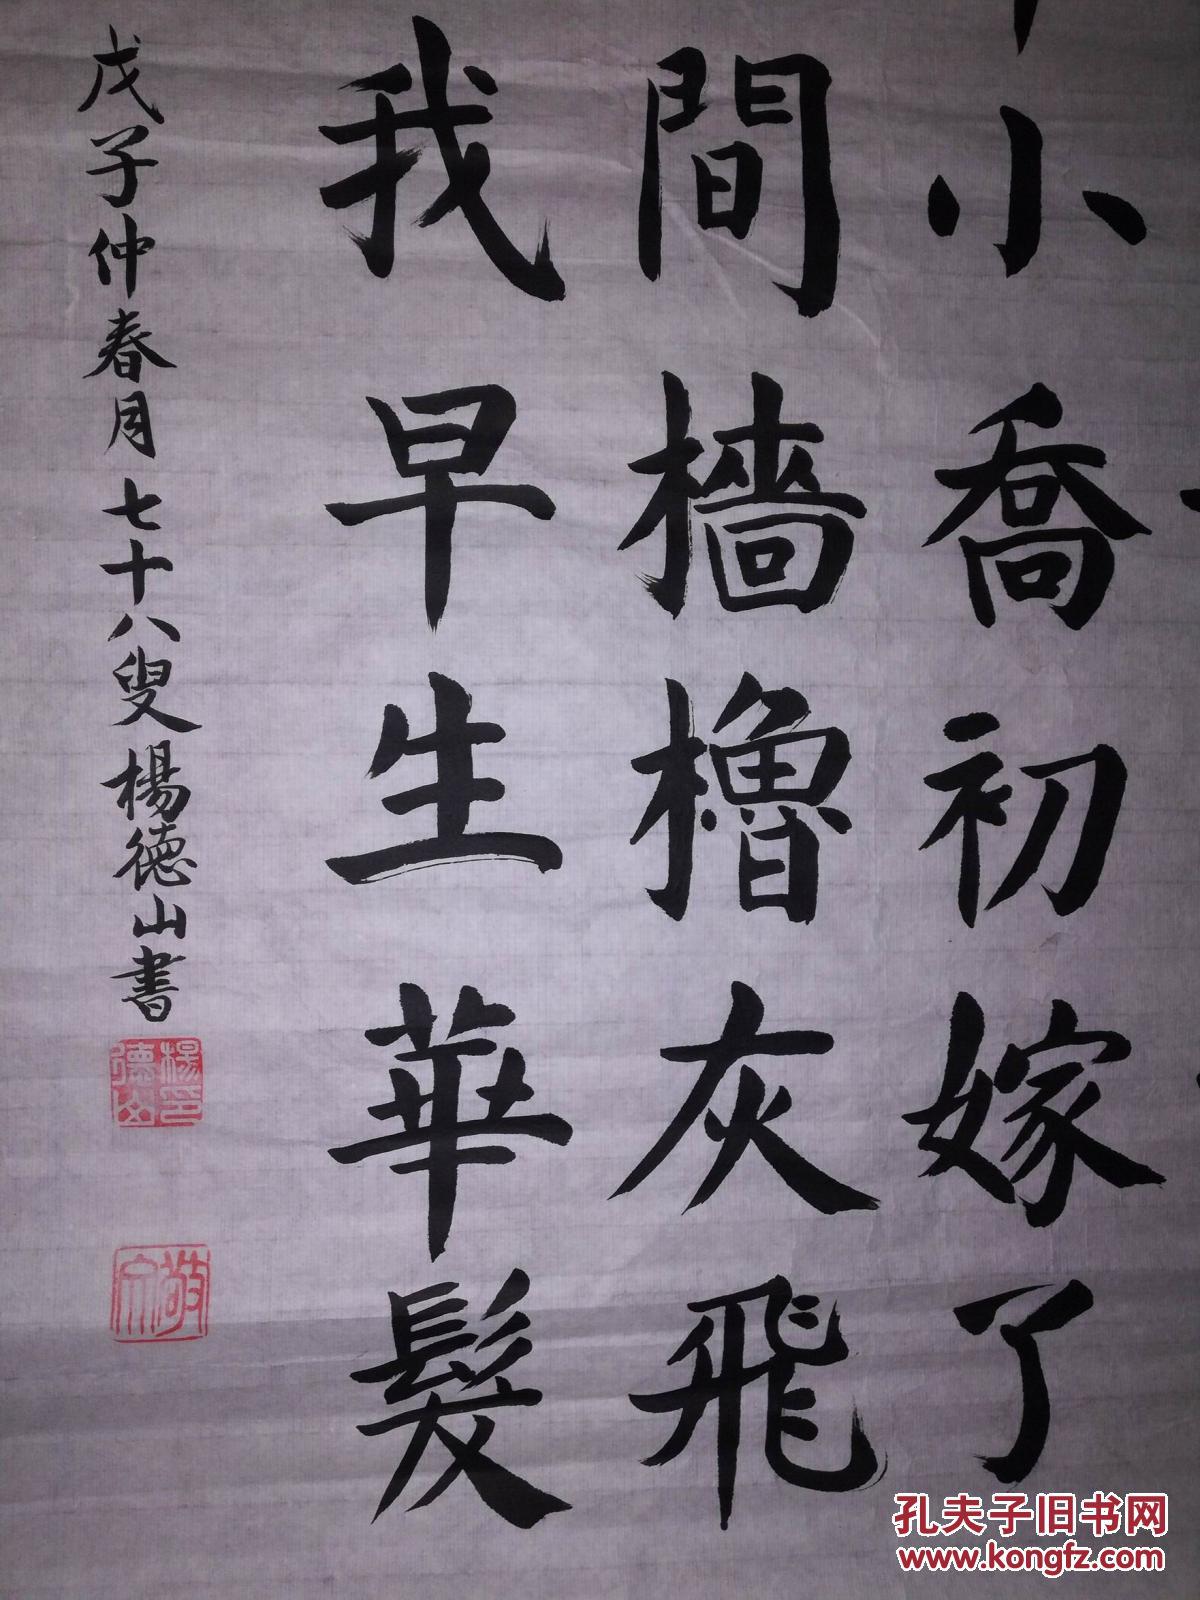 小喬初嫁了
間檣櫓灰飛
我早生華髮
戊子仲春月七十八叟楊德山書
楊德山印
敬宗
孔夫子旧书网
www.kongfz.com